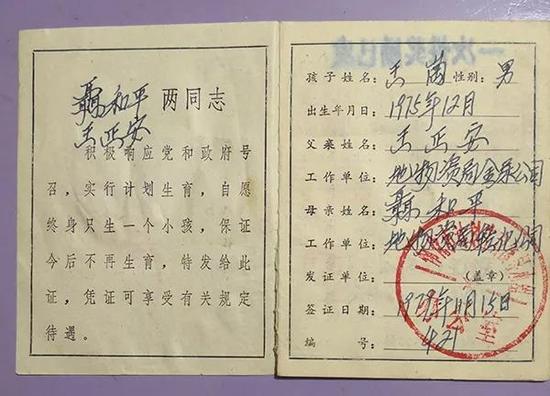 聂和平 两同志
王正安
积极响应党和政府号
召，实行计划生育，自愿
终身只生一个小孩，保证
今后不再生育，特发给此
证，凭证可享受有关规定
待遇。
孩子姓名：王 性别：男
出生年月日：1975年12月
父亲姓名：王正安
工作单位：地物资局金采公司
母亲姓名：聂和平
工作单位：地物资局轻化公司
发证单位： （盖章）
签证日期：1979年11月15日
编 号：421